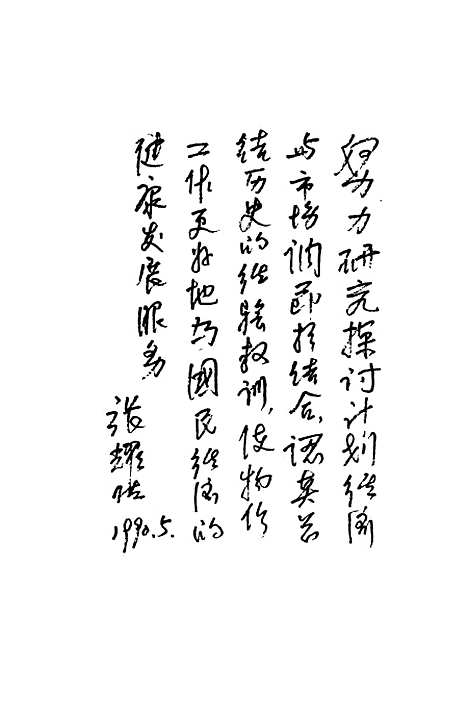 努力研究探讨计划经济
与市场调节相结合，认真总
结历史的经验教训，使物价
工作更好地为國民经济的
健康发展服务
张耀
1990.5.